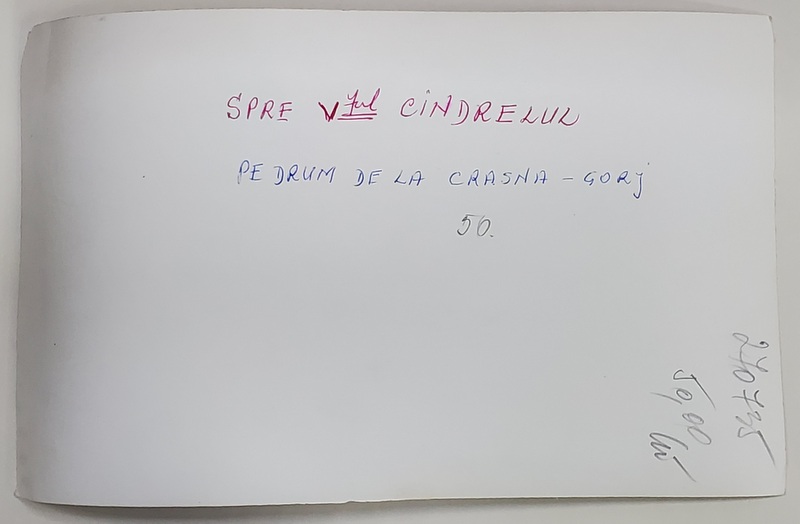 SPRE Vful CINDRELUL
PE DRUM DE LA CRASNA - GORj
50.
240735
50,00
lei